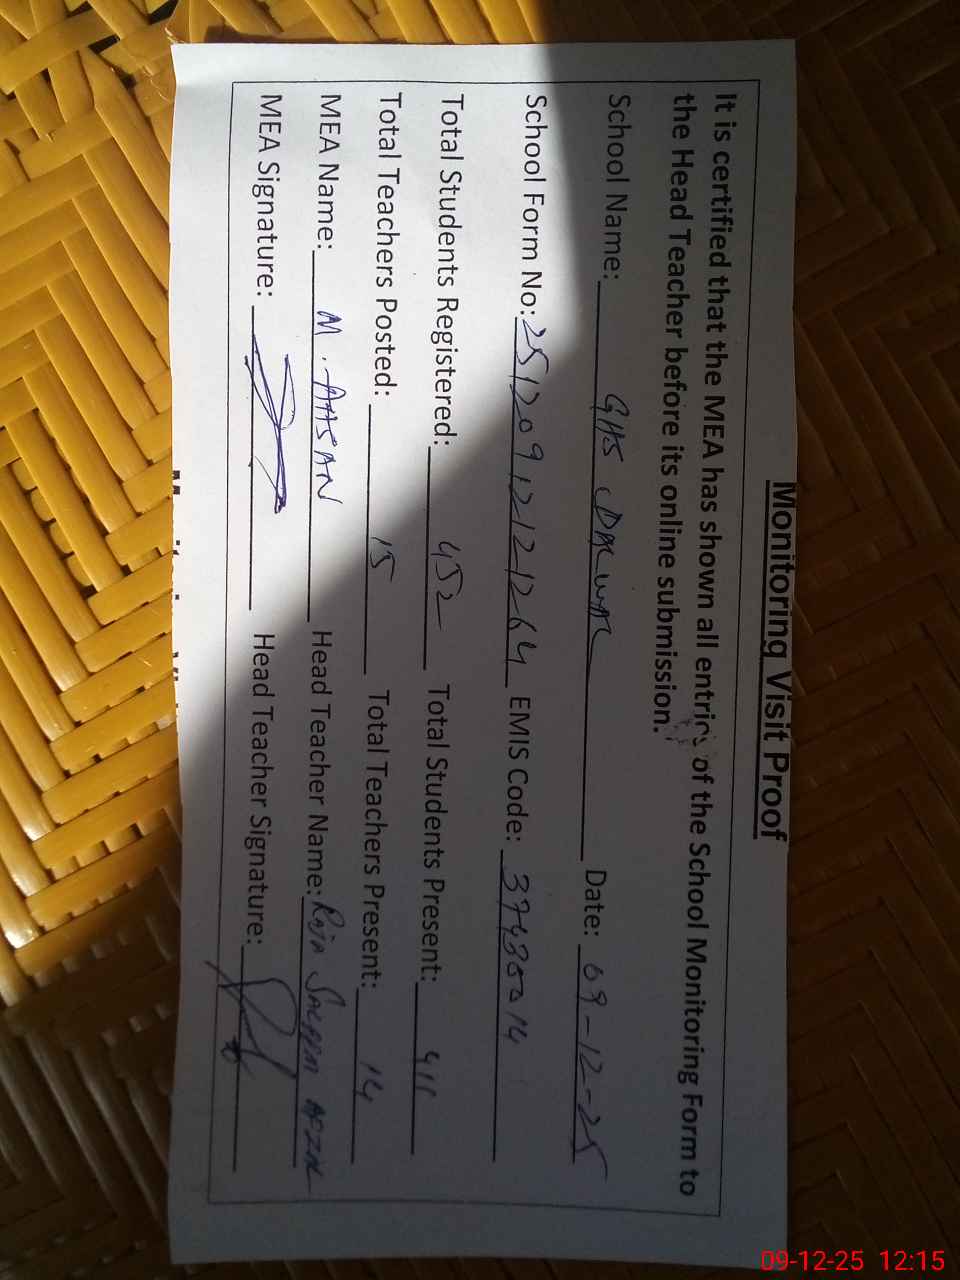 Monitoring Visit Proof
It is certified that the MEA has shown all entries of the School Monitoring Form to
the Head Teacher before its online submission.
School Name: GHS Date: 09-12-25
School Form No: 25120912121264 EMIS Code: 37430014
Total Students Registered: 452 Total Students Present: 411
Total Teachers Posted: 15 Total Teachers Present: 14
MEA Name: M. AHSAN Head Teacher Name: Raja
MEA Signature: Head Teacher Signature:
09-12-25 12:15